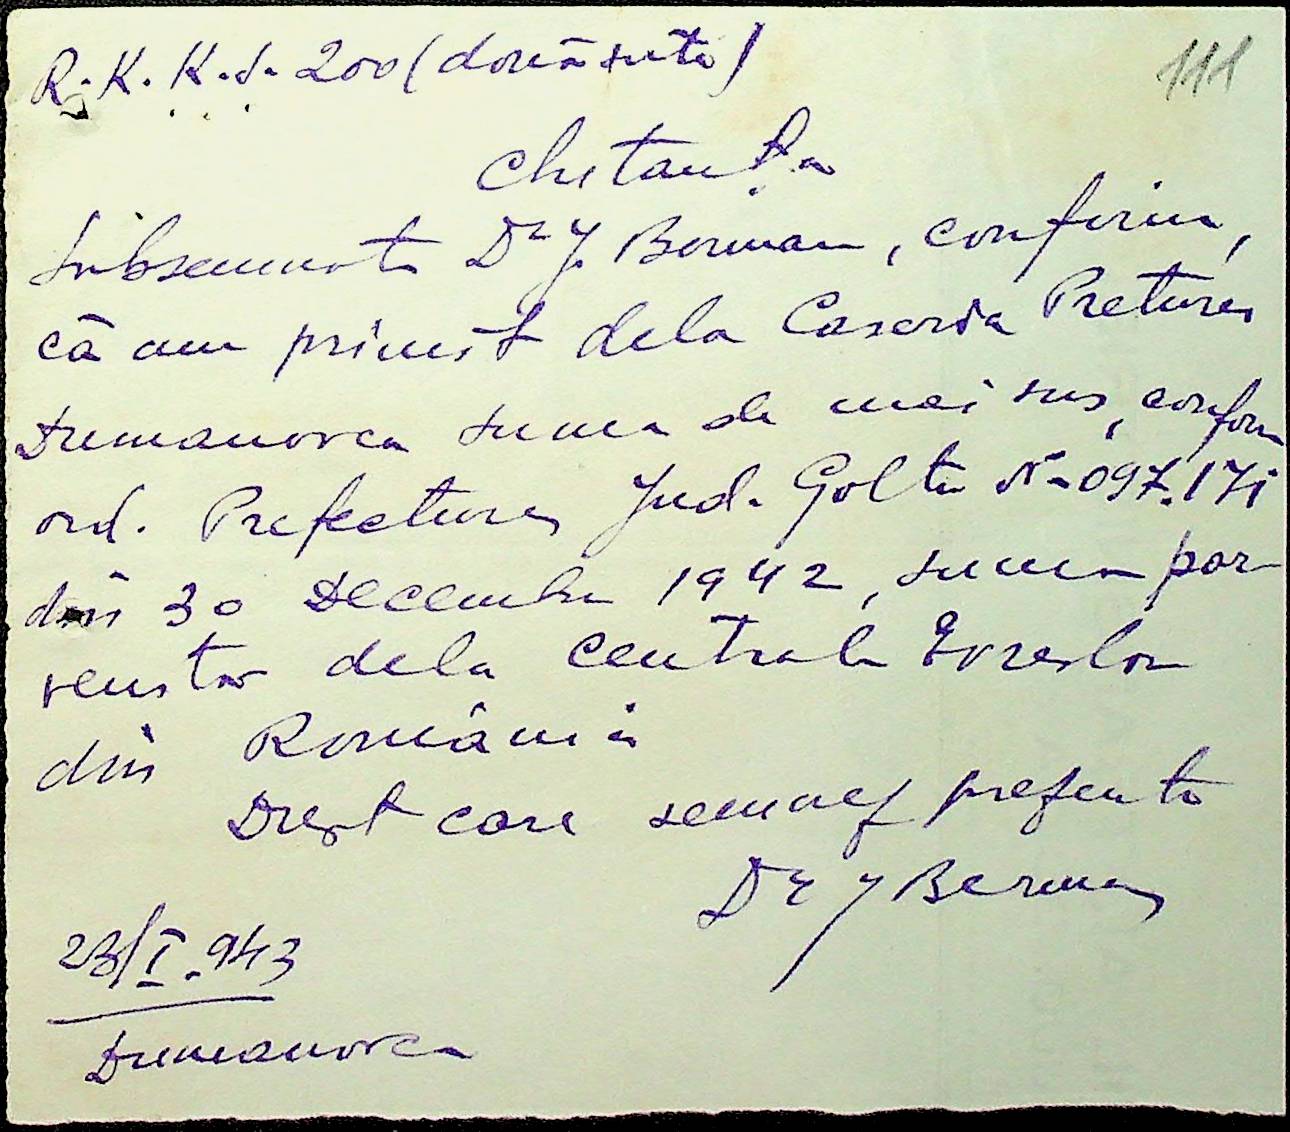 R.K.K.S. 200 (două sute)
111
Chitanța
Subsemnatu Dr J. Berman, confirm,
că am primit dela Caseria Preturei
Dumanovca suma de mai sus, conform
ord. Prefecturei Jud. Golta No 097.171
din 30 Decembr 1942, suma par
venita dela Centrala Evreilor
din România
Drept care semnez prezenta
Dr J Berman
23/I.943
Dumanovca